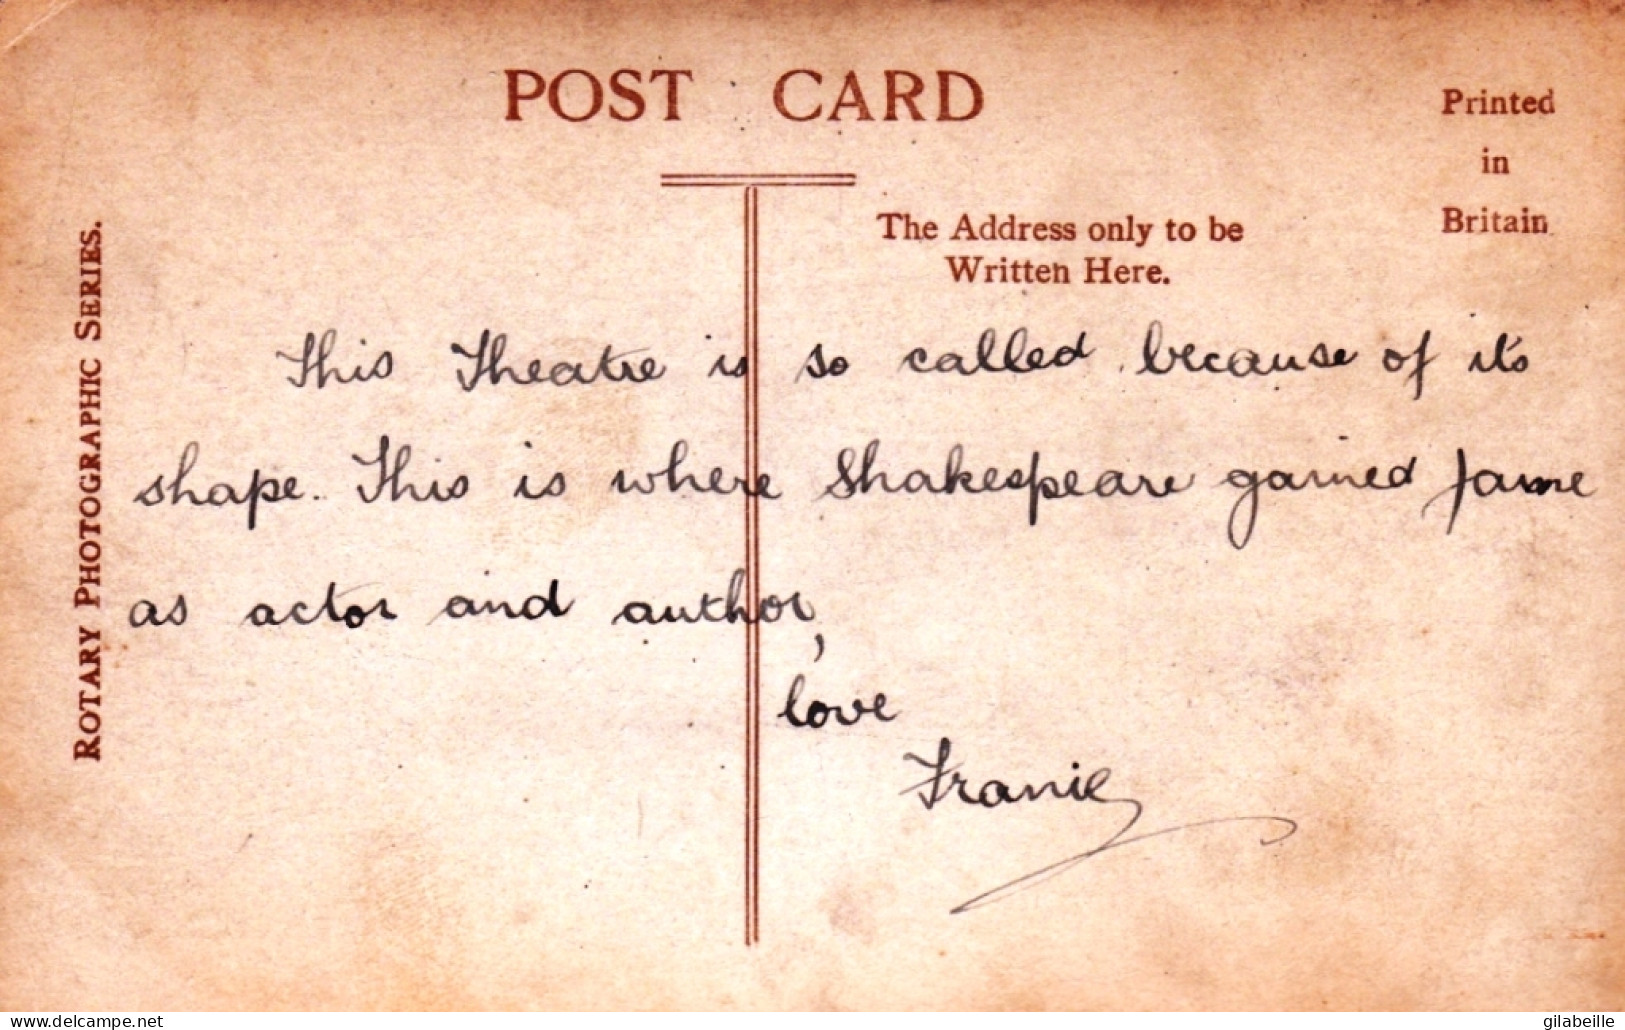 POST CARD
Printed
in
Britain
The Address only to be
Written Here.
ROTARY PHOTOGRAPHIC SERIES.
This Theatre is so called because of it's
shape. This is where Shakespeare gained fame
as actor and author,
love
Franie
www.delcampe.net
gilabeille